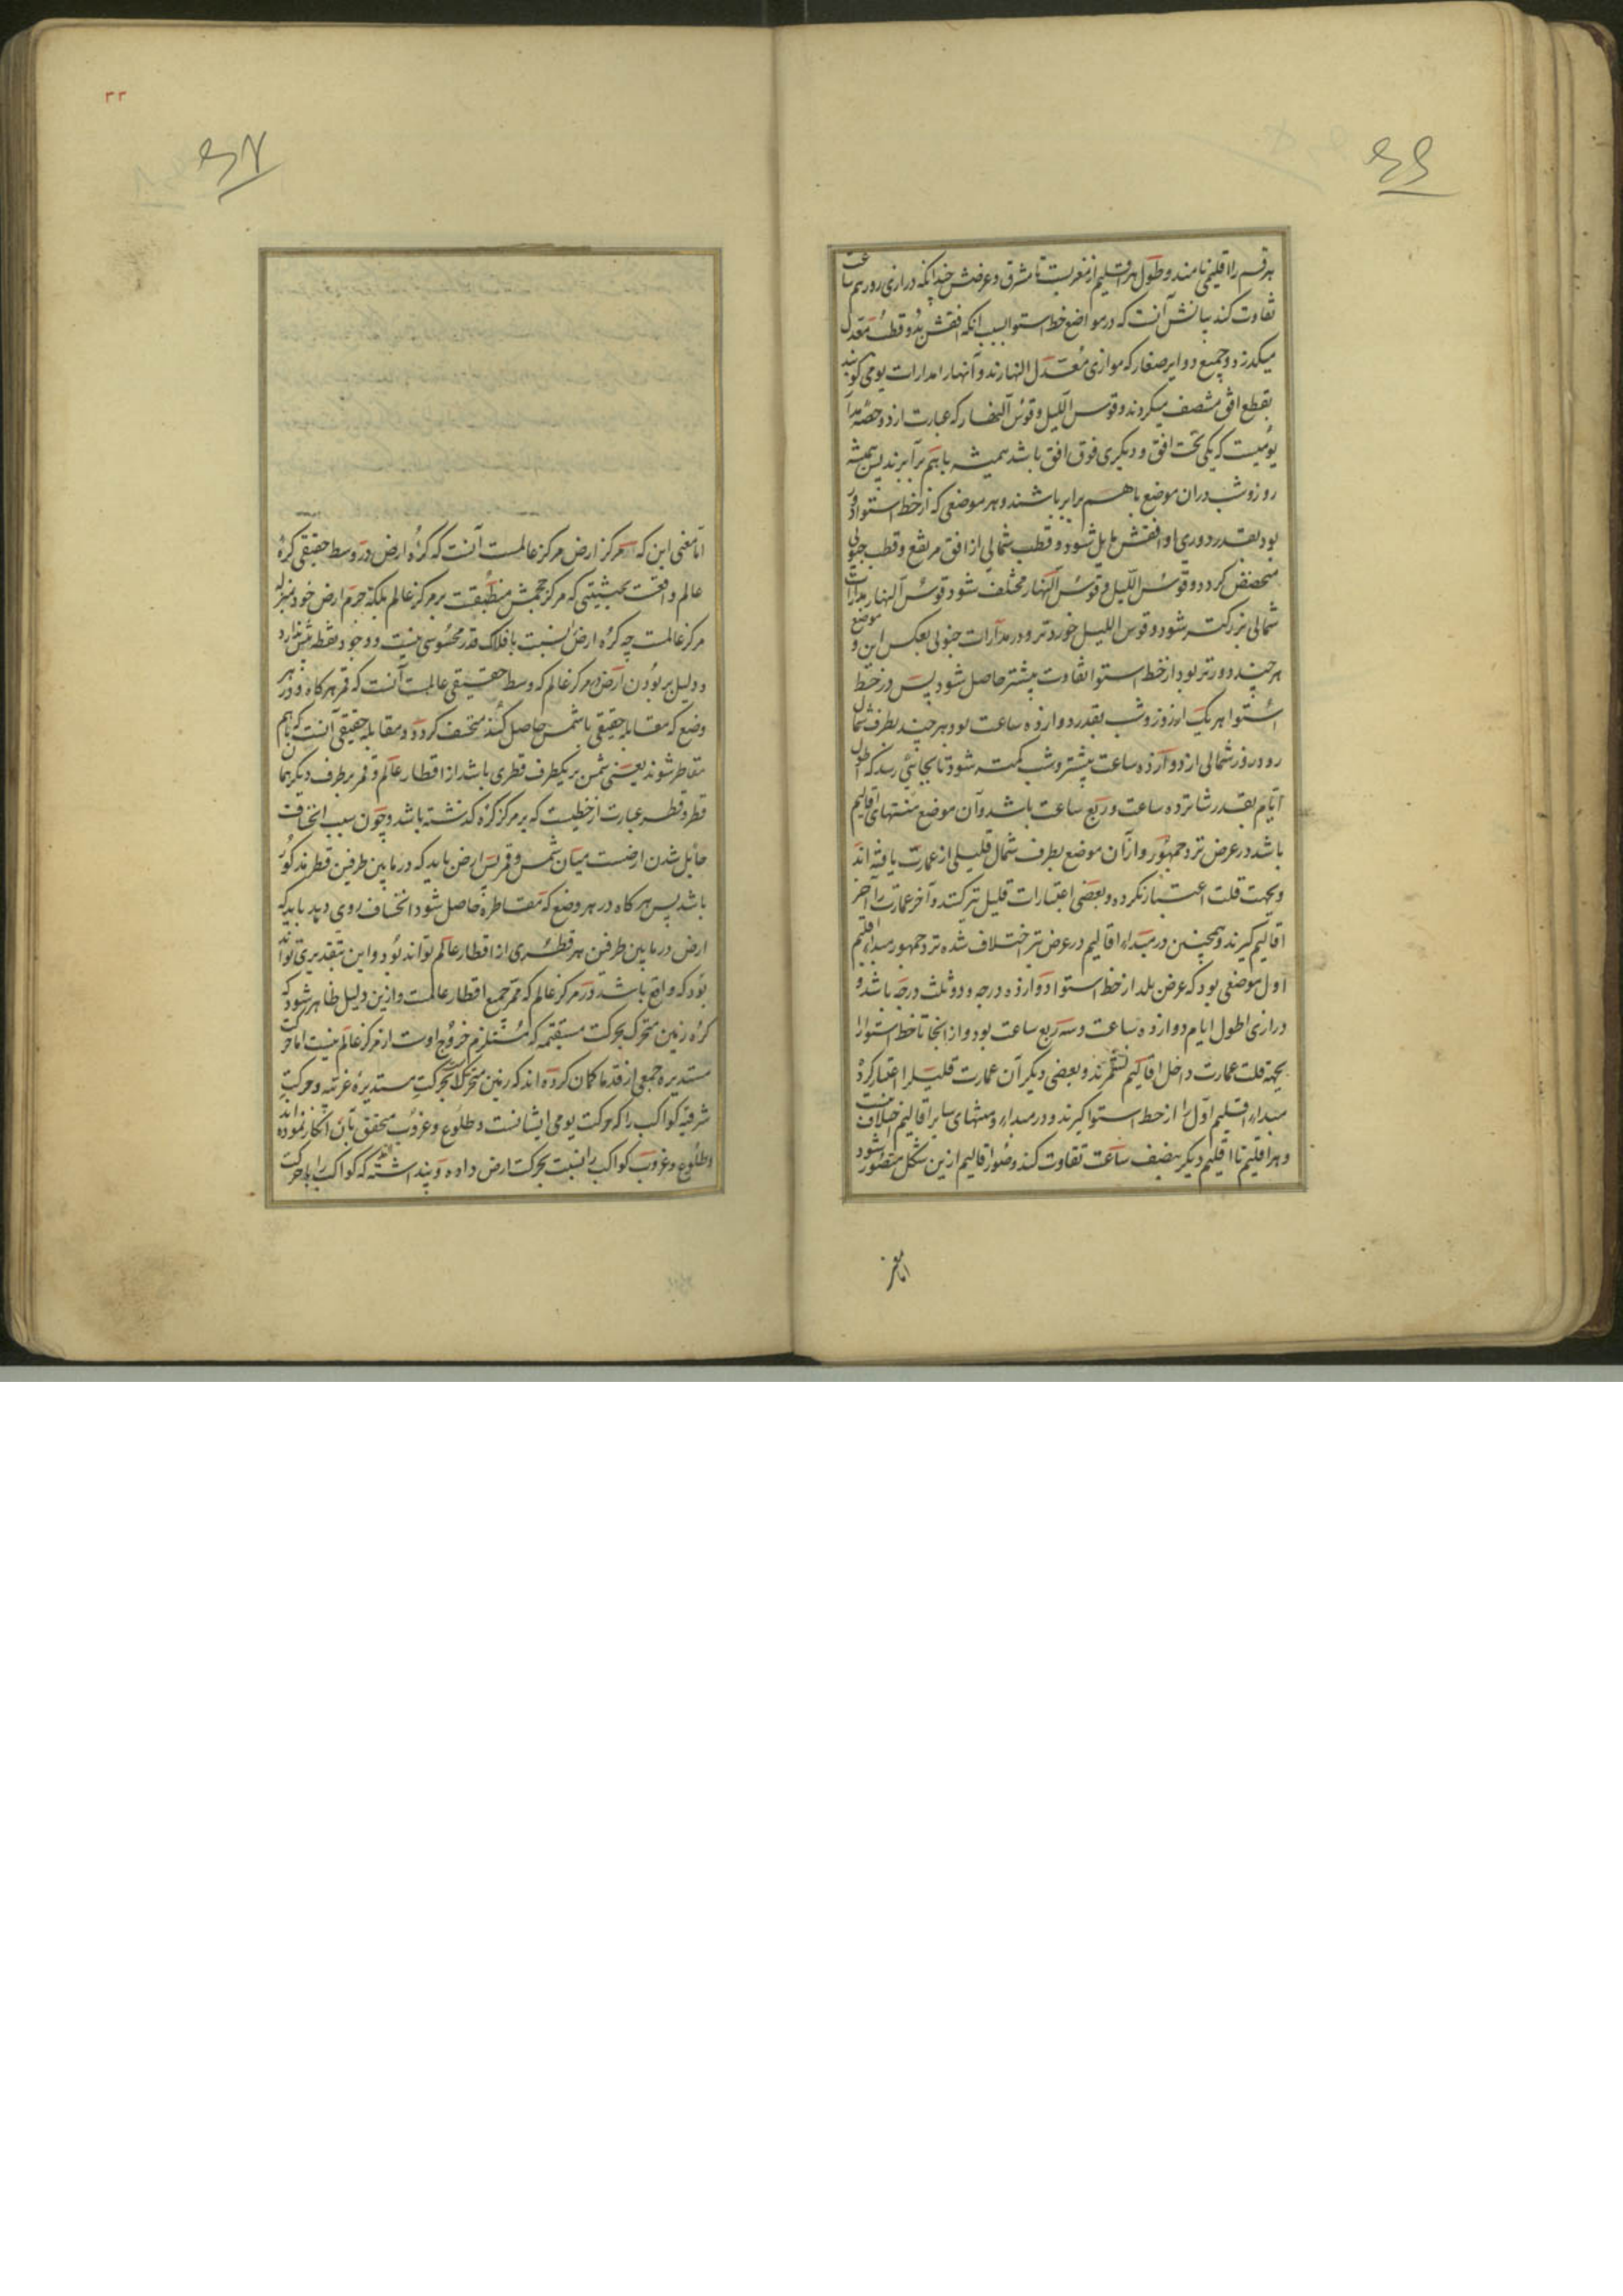 ۶۶
هر قسم را اقلیمی نامند و طول هر اقلیم از مغربست تا مشرق و عرضش چندانکه درازی روز نیم ساعت
تفاوت کند بیانش آنست که در مواضع خط استوا بسبب آنکه افقش بدو قطب معدل
میکذرد و جمیع دوایر صغار که موازی معدل النهارند و آنها را مدارات یومی کویند
بقطع افق منصف میکردند و قوس اللیل و قوس النهار که عبارت از دو حصه مدار
یومیست که یکی تحت افق و دیکری فوق افق باشد همیشه با هم برابرند پس همیشه
روز و شب دران موضع با هم برابر باشند و هر موضعی که از خط استوا دور
بود بقدر دوری او افقش مایل شود و قطب شمالی از افق مرتفع و قطب جنوبی
منخفض کردد و قوس اللیل و قوس النهار مختلف شود قوس النهار مدارات
شمالی بزرکتر شود و قوس اللیل خوردتر و در مدارات جنوبی بعکس این و موضع
هر چند دورتر بود از خط استوا تفاوت بیشتر حاصل شود پس در خط
استوا هر یک از روز و شب بقدر دوازده ساعت بود و هر چند بطرف شمال
رود روز شمالی از دوازده ساعت بیشتر و شب کمتر شود تا بجائی رسد که اطول
ایام بقدر شانزده ساعت و ربع ساعت باشد و آن موضع منتهای اقالیم
باشد در عرض نزد جمهور و از آن موضع بطرف شمال قلیلی از عمارت یافته اند
و بجهت قلت اعتبار نکرده و بعضی اعتبارات قلیل نیز کنند و آخر عمارت را آخر
اقالیم کیرند و همچنین در مبداء اقالیم در عرض نیز اختلاف شده نزد جمهور مبداء اقلیم
اول موضعی بود که عرض بلد از خط استوا دوازده درجه و دو ثلث درجه باشد و
درازی اطول ایام دوازده ساعت و سه ربع ساعت بود و از انجا تا خط استوا را
بجهة قلت عمارت داخل اقالیم نشمرند و بعضی دیکر آن عمارت قلیل را اعتبار کرده
مبداء اقلیم اول را از خط استوا کیرند و در مبداء و منتهای سایر اقالیم خلاف نیست
و هر اقلیم تا اقلیم دیکر بنصف ساعت تفاوت کند و صور اقالیم ازین شکل متصور شود
اما معنی
۳۳
۶۷
اما معنی این که مرکز ارض مرکز عالمست آنست که کرهٔ ارض در وسط حقیقی کرهٔ
عالم واقعست بحیثیتی که مرکز حجمش منطبقست بر مرکز عالم بلکه جرم ارض خود بمنزله
مرکز عالمست چه کره ارض نسبت بافلاک قدر محسوسی نیست و وجود نقطه بیش ندارد
و دلیل بر بودن ارض در مرکز عالم که وسط حقیقی عالمست آنست که قمر هر کاه و در هر
وضع که مقابله حقیقی با شمس حاصل کند منخسف کردد و مقابله حقیقی آنست که باهم
مقاطر شوند یعنی شمس بر یکطرف قطری باشد از اقطار عالم و قمر بر طرف دیکر همان
قطر و قطر عبارت از خطیست که بر مرکز کره کذشته باشد و چون سبب انخساف
حایل شدن ارضست میان شمس و قمر پس ارض باید که در مابین طرفین قطر مذکور
باشد پس هر کاه در هر وضع که مقاطره حاصل شود انخساف روی دهد باید که
ارض در مابین طرفین هر قطری از اقطار عالم تواند بود و این بتقدیری تواند
بود که واقع باشد در مرکز عالم که ممر جمیع اقطار عالمست و ازین دلیل ظاهر شود که
کره زمین متحرک بحرکت مستقیمه که مستلزم خروج اوست از مرکز عالم نیست اما حرکت
مستدیره جمعی از قدما کمان کرده اند که زمین متحرکست بحرکت مستدیرهٔ غربیه و حرکت
شرقیه کواکب را که حرکت یومی ایشانست و طلوع و غروب متحقق بآن انکار نموده اند
و طلوع و غروب کواکب را نسبت بحرکت ارض داده و پنداشته اند که کواکب را با حرکت